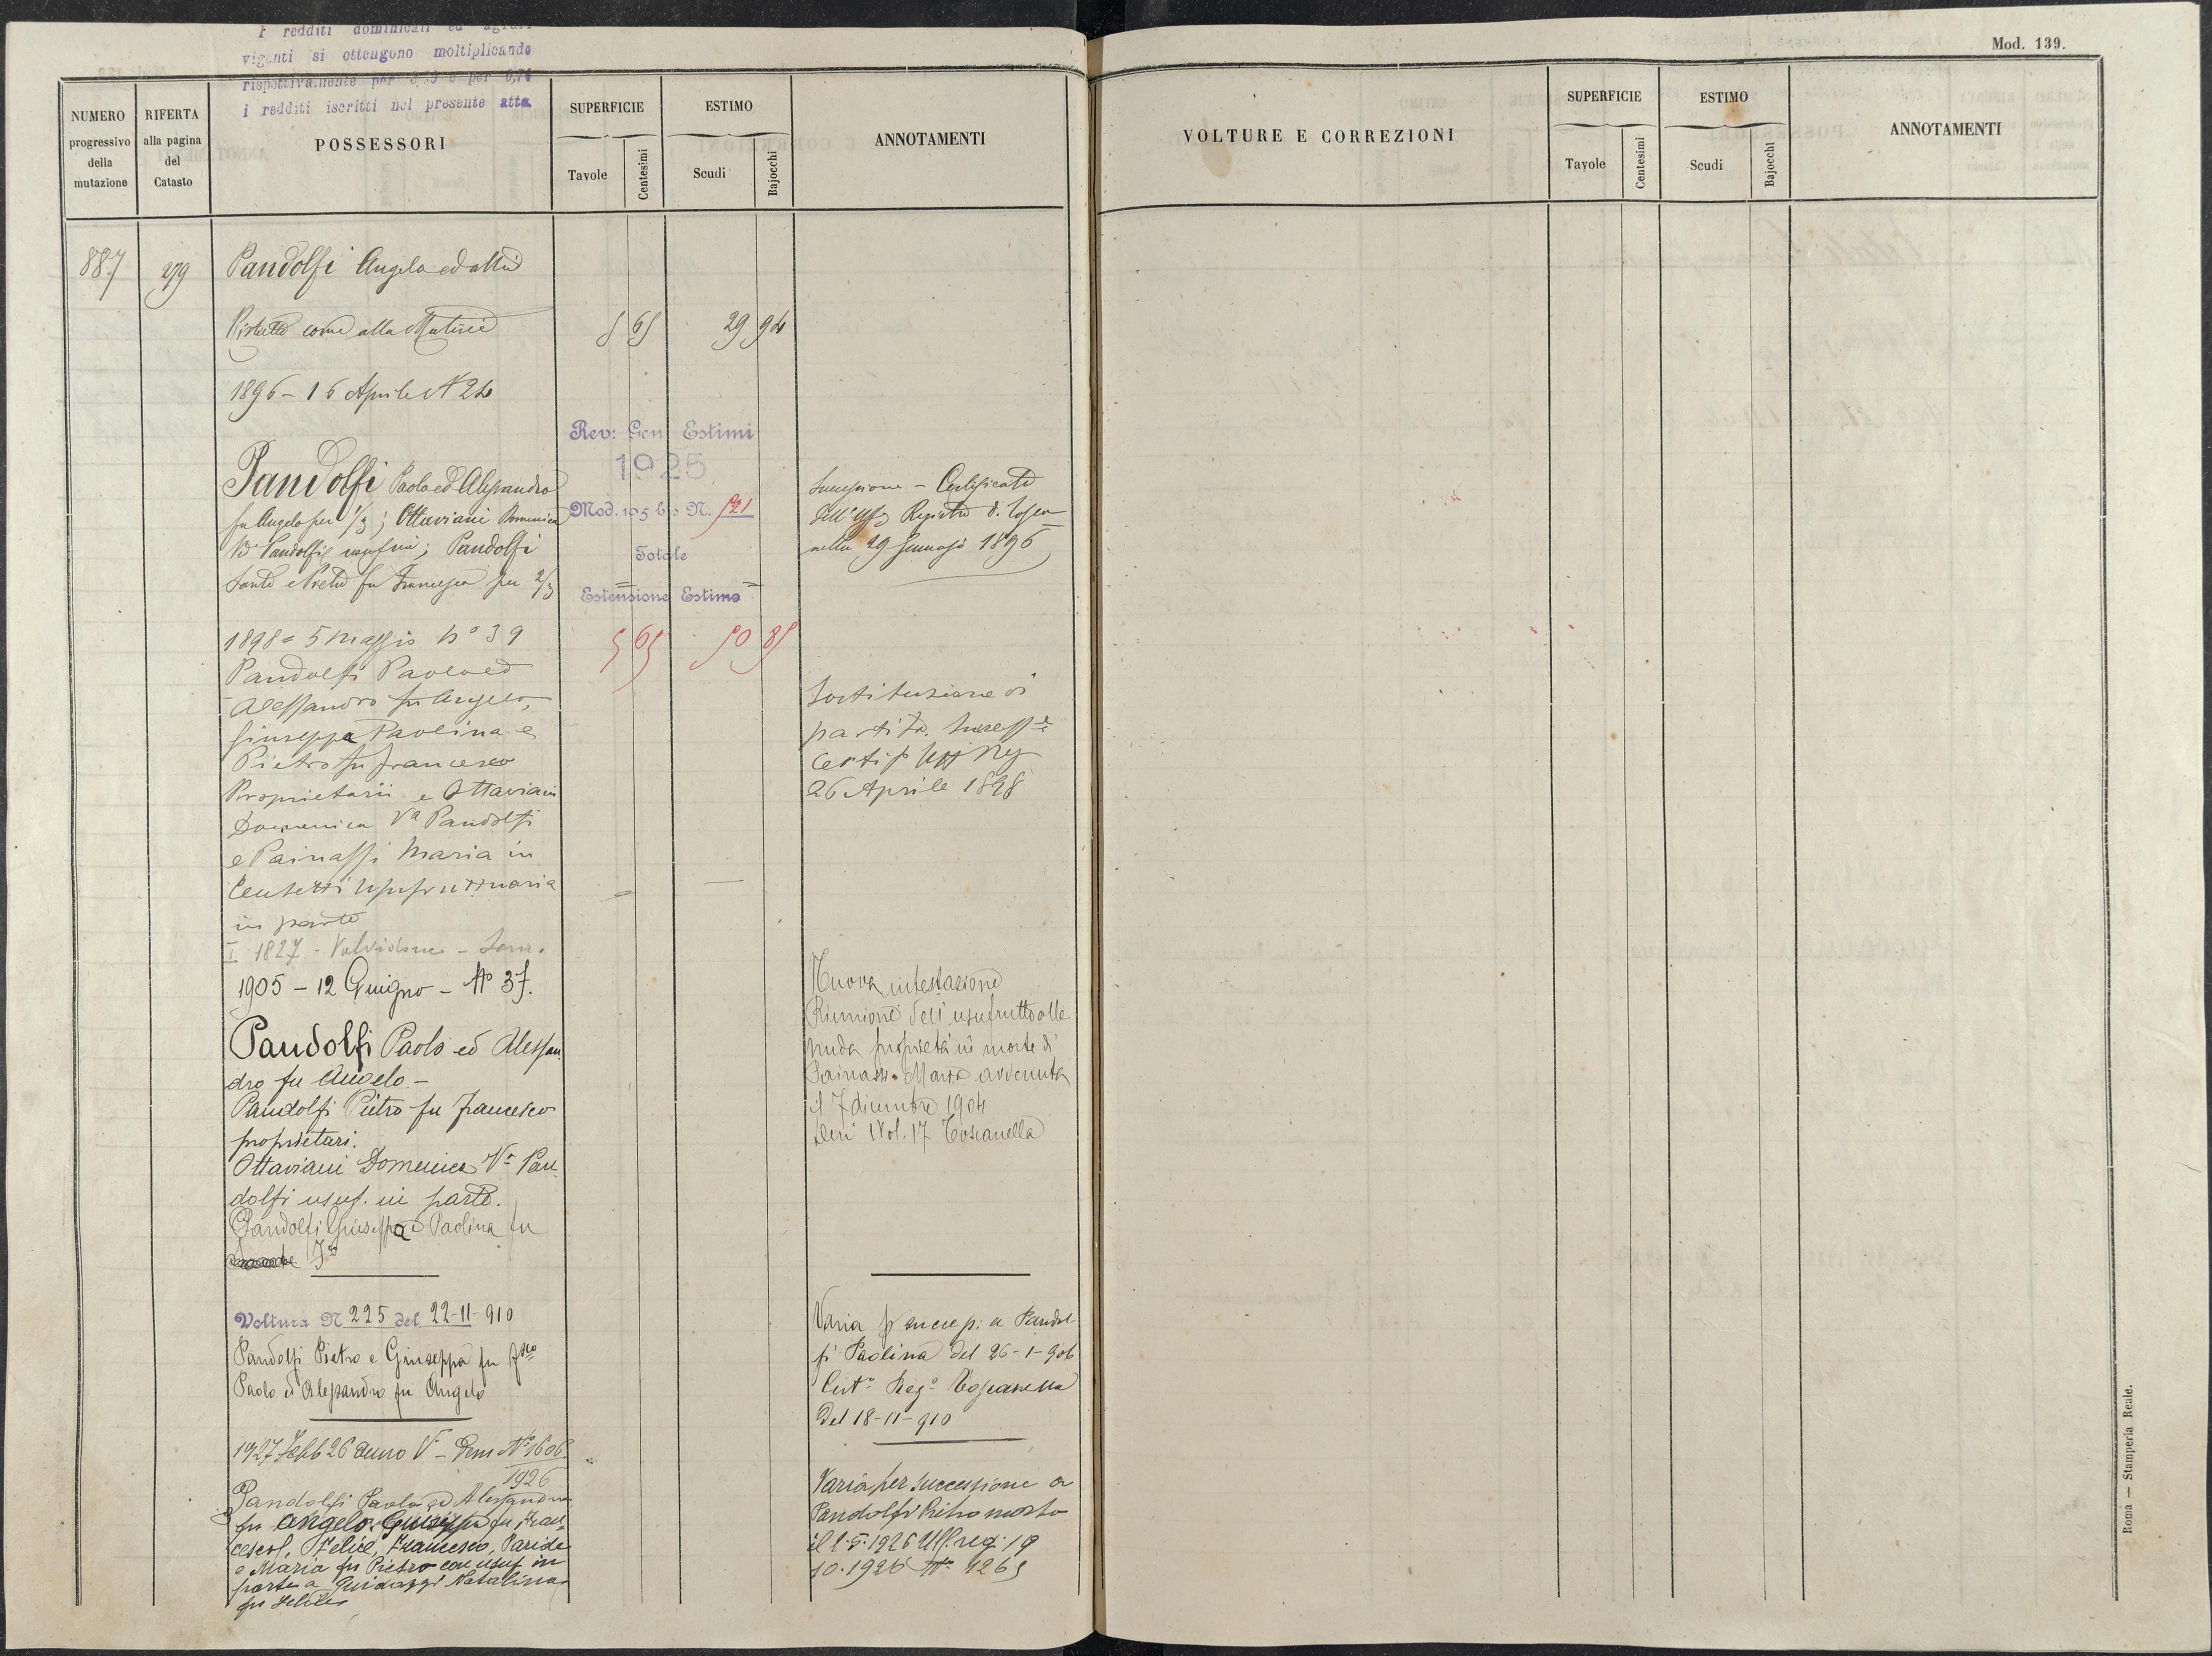 I redditi dominicali ed agrari
vigenti si ottengono moltiplicando
rispettivamente per
i redditi iscritti nel presente atto.
NUMERO
progressivo
della
mutazione
RIFERTA
alla pagina
del
Catasto
POSSESSORI
SUPERFICIE
Tavole
Centesimi
ESTIMO
Scudi
Bajocchi
ANNOTAMENTI
887
279
Pandolfi Angelo ed altri
come alla Matrice
5 65 29 94
1896 - 16 Aprile N 24
Rev: Gen Estimi
1925
Mod. 105 bis N. 521
Totale
Estensione Estimo
5 65 50 85
Pandolfi Paolo ed Alessandro
fu Angelo per 1/3; Ottaviani Domenica
Va Pandolfi; Pandolfi
e Pietro fu Francesco per 2/3
Successione - Certificato
dell'Uffo Registro di Tosca
nella 29 Gennajo 1896
1898 = 5 Maggio No 39
Pandolfi Paolo ed
Alessandro fu Angelo,
Giuseppa Paolina e
Pietro fu Francesco
Proprietarii e Ottaviani
Domenica Va Pandolfi
e Painassi Maria in
usufruttuaria
in parte
Sostituzione di
partita. Successe
Certif Uff Reg
26 Aprile 1898
I 1827 -
1905 - 12 Giugno - No 37.
Pandolfi Paolo ed Alessan
dro fu Angelo -
Pandolfi Pietro fu Francesco
proprietari.
Ottaviani Domenica Va Pan
dolfi usuf. in parte.
Pandolfi Giuseppa e Paolina fu
Nuova intestazione
Riunione dell'usufrutto alla
nuda proprietà in morte di
Painassi Maria avvenuta
il 7 dicembre 1904
Vol. 17 Toscanella
Voltura N 225 del 22-11-910
Pandolfi Pietro e Giuseppa fu Fsco
Paolo ed Alessandro fu Angelo
Varia p succes: a Pandol
fi Paolina del 26-1-906
Certo Rego Toscanella
del 18-11-910
1927 Febb 26 anno V - Dem No 1606
1926
Pandolfi Paolo ed Alessandro
fu Angelo, Giuseppa fu Fran
cesco, Felice, Francesco, Paride
e Maria fu Pietro con usuf in
parte a Natalina
fu Felice
Varia per successione a
Pandolfi Pietro morto
il 1.5.1926 Uff. reg. 19
10.1926 No 4265
Mod. 139.
VOLTURE E CORREZIONI
SUPERFICIE
Tavole
Centesimi
ESTIMO
Scudi
Bajocchi
ANNOTAMENTI
Roma — Stamperia Reale.